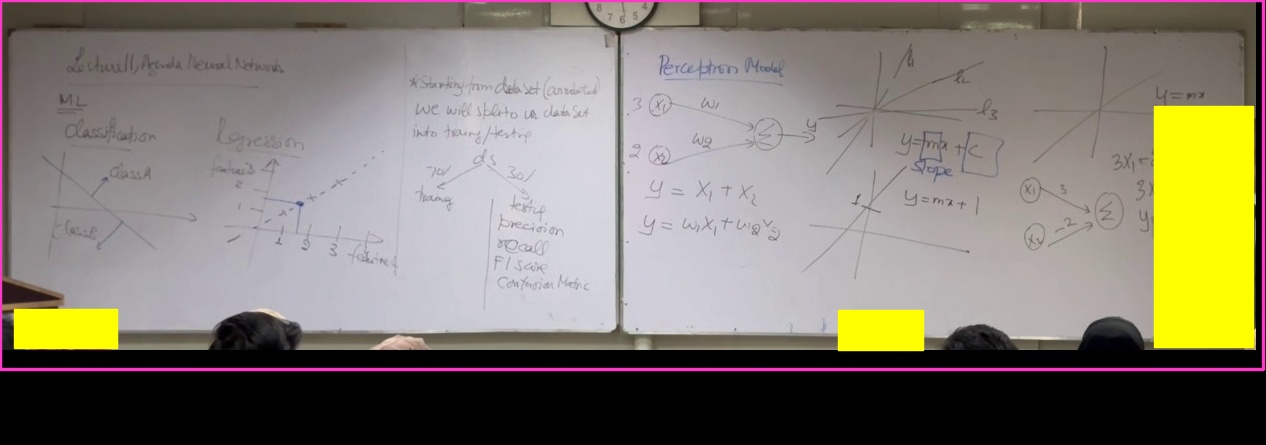 Lecture 11, Agenda Neural Networks
ML
Classification
Class A
Class B
Regression
feature 2
2
1
1 2 3 4
feature 1
* Starting from dataset (annotated)
we will split to us dataset
into traing/testing
ds
70/ 30/
traing
testing
precision
recall
F1 score
Confusion Matric
8 7 6 5 4
Perceptron Model
3 x1 w1
2 x2 w2
Σ y
y = x1 + x2
y = w1x1 + w2x2
l1
l2
l3
y = mx + C
Slope
1
y = mx + 1
y = mx
3x1 -
3x
y
x1 3
x2 -2
Σ